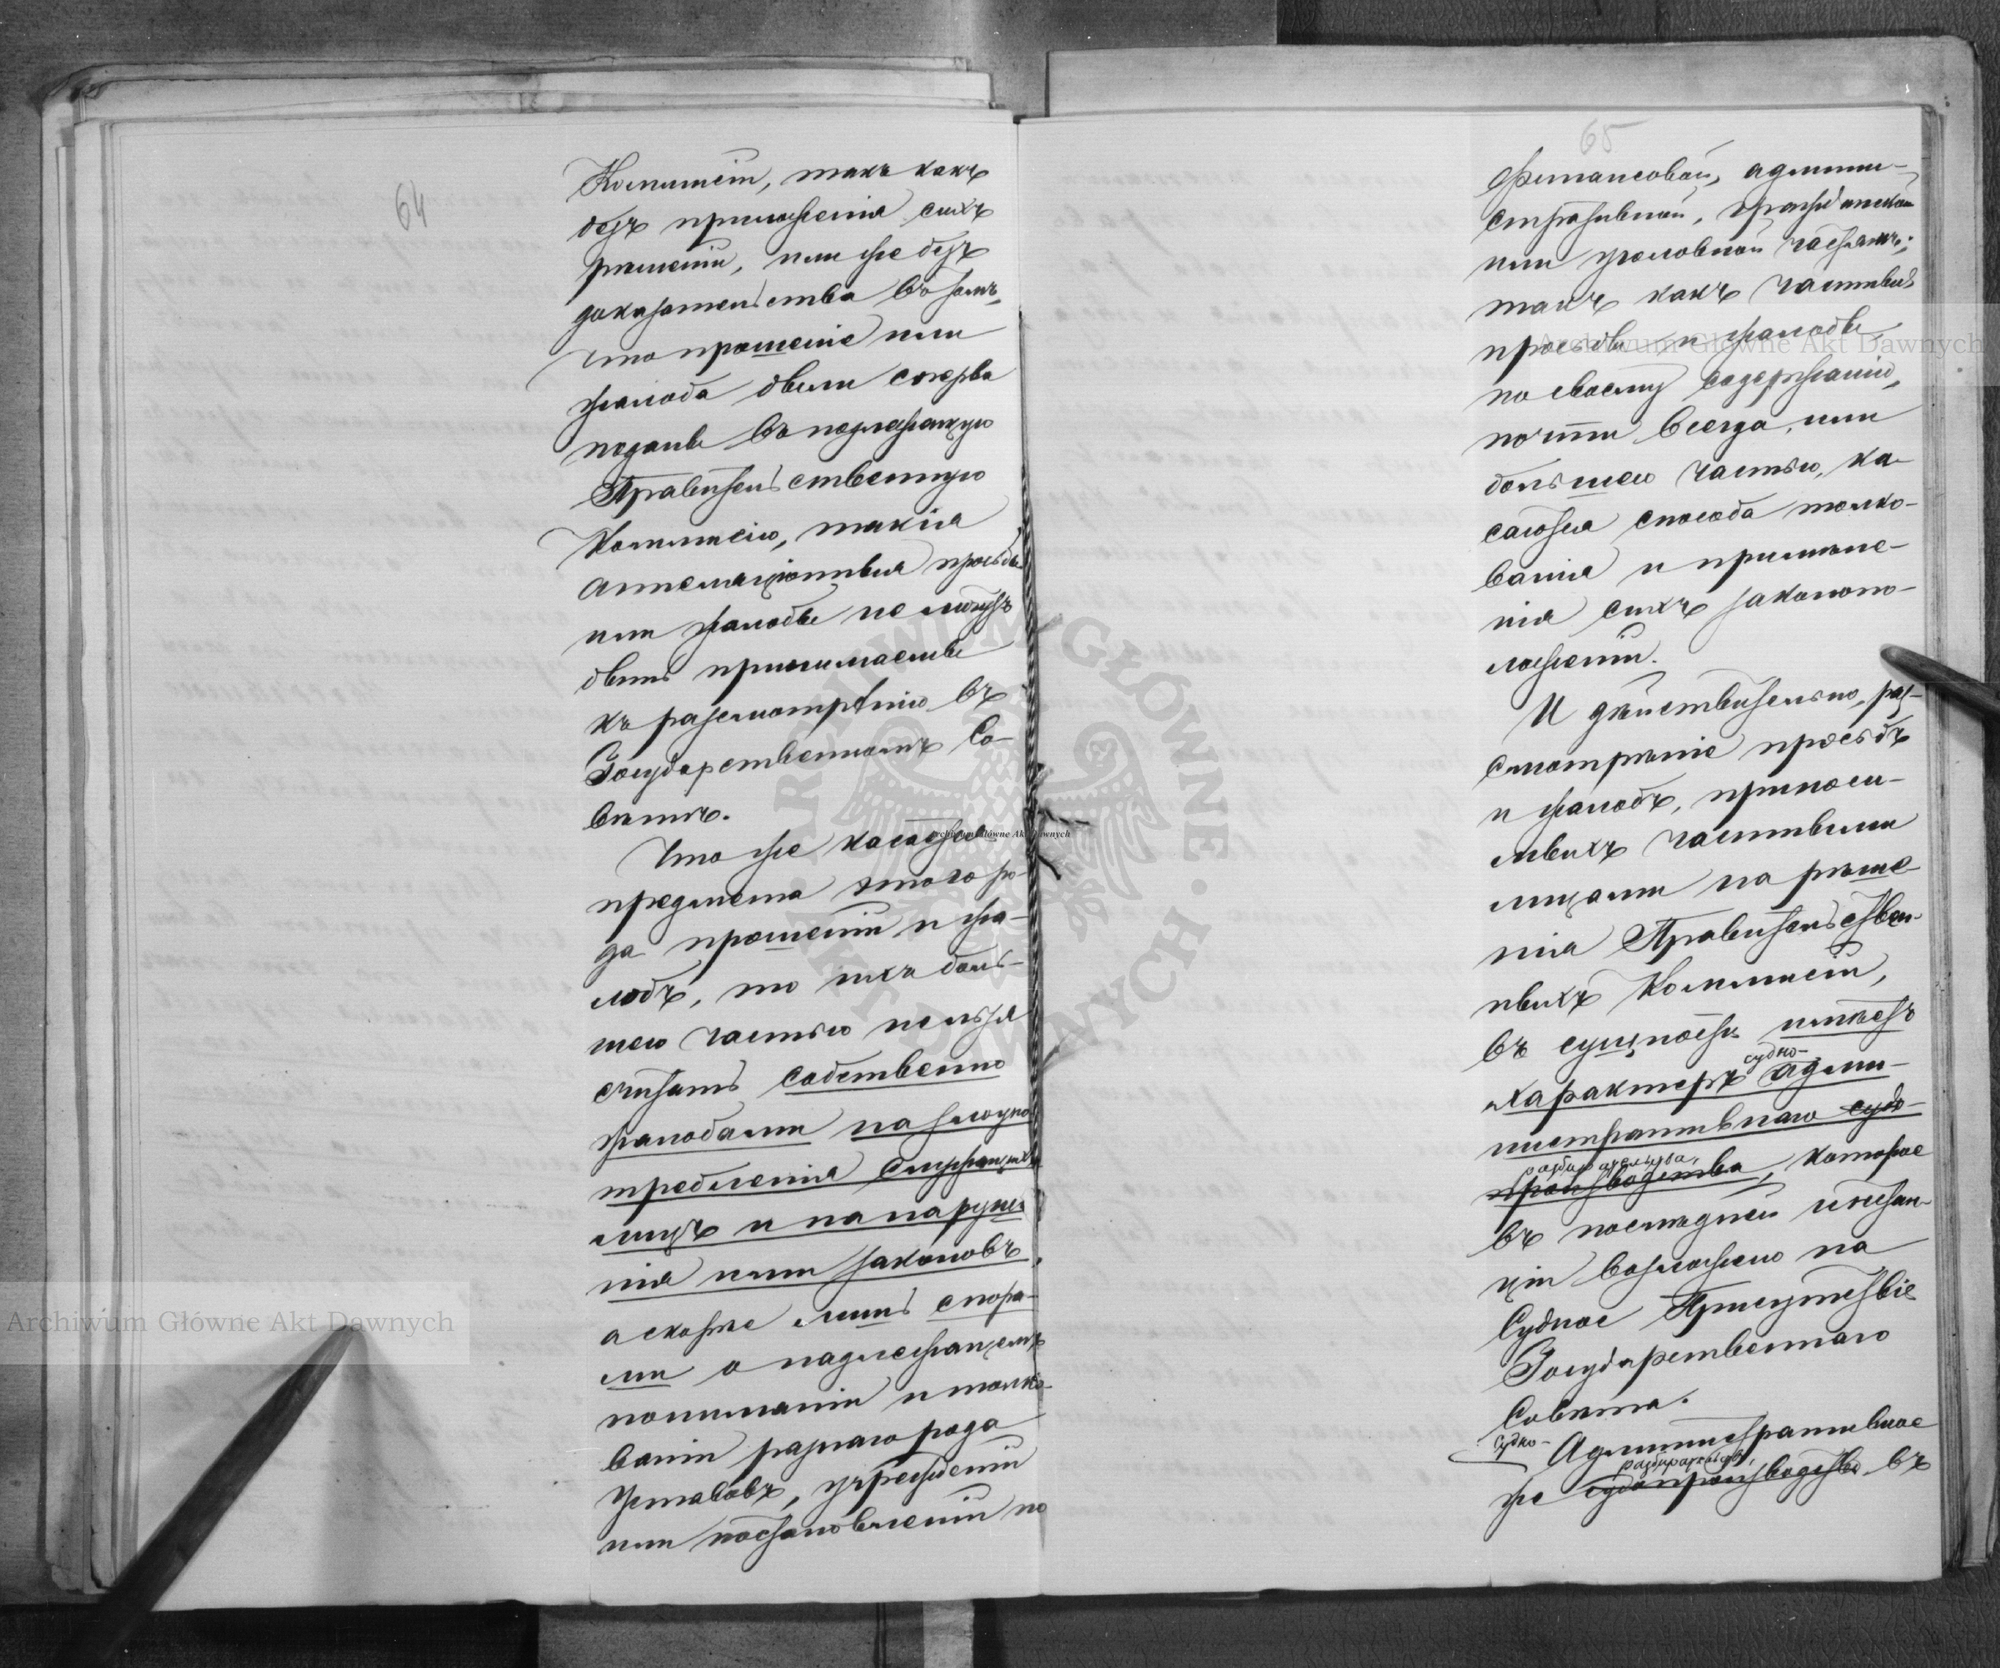 64
Коммисіи, такъ какъ
безъ приложенія сихъ
рѣшеній, или же безъ
доказательства въ томъ,
что прошеніе или
жалоба были сперва
поданы въ подлежащую
Правительственную
Коммисію, такія
аппеляціонныя просьбы
или жалобы не могутъ
быть принимаемы
къ разсмотрѣнію въ
Государственномъ Со-
вѣтѣ.
Что же касается
предмета этого ро-
да прошеній и жа-
лобъ, то ихъ боль-
шею частью нельзя
считать собственно
жалобами на злоупо
требленія служащихъ
лицъ и на наруше
нія ими законовъ,
а скорѣе лишь спора-
ми о надлежащемъ
пониманіи и толко-
ваніи разнаго рода
Уставовъ, учрежденій
или постановленій по
65
финансовой, админи-
стративной, гражданской
или уголовной частямъ;
такъ какъ частныя
просьбы и жалобы,
по своему содержанію,
почти всегда, или
большею частью, ка-
саются способа толко-
ванія и примѣне-
нія сихъ законопо-
ложеній.
И дѣйствительно, раз-
смотрѣніе просьбъ
и жалобъ, приноси-
мыхъ частными
лицами на рѣше
нія Правительствен-
ныхъ Коммисій,
въ сущности имѣетъ
судно-
характеръ адми-
нистративнаго судо-
разбирательства,
производства, которое
въ послѣдней инстан-
ціи возложено на
Судное Присутствіе
Государственнаго
Совѣта.
Судно- Административное
разбирательство,
же судопроизводство въ
Archiwum Główne Akt Dawnych
Archiwum Główne Akt Dawnych
Archiwum Główne Akt Dawnych
ARCHIWUM GŁÓWNE AKT DAWNYCH